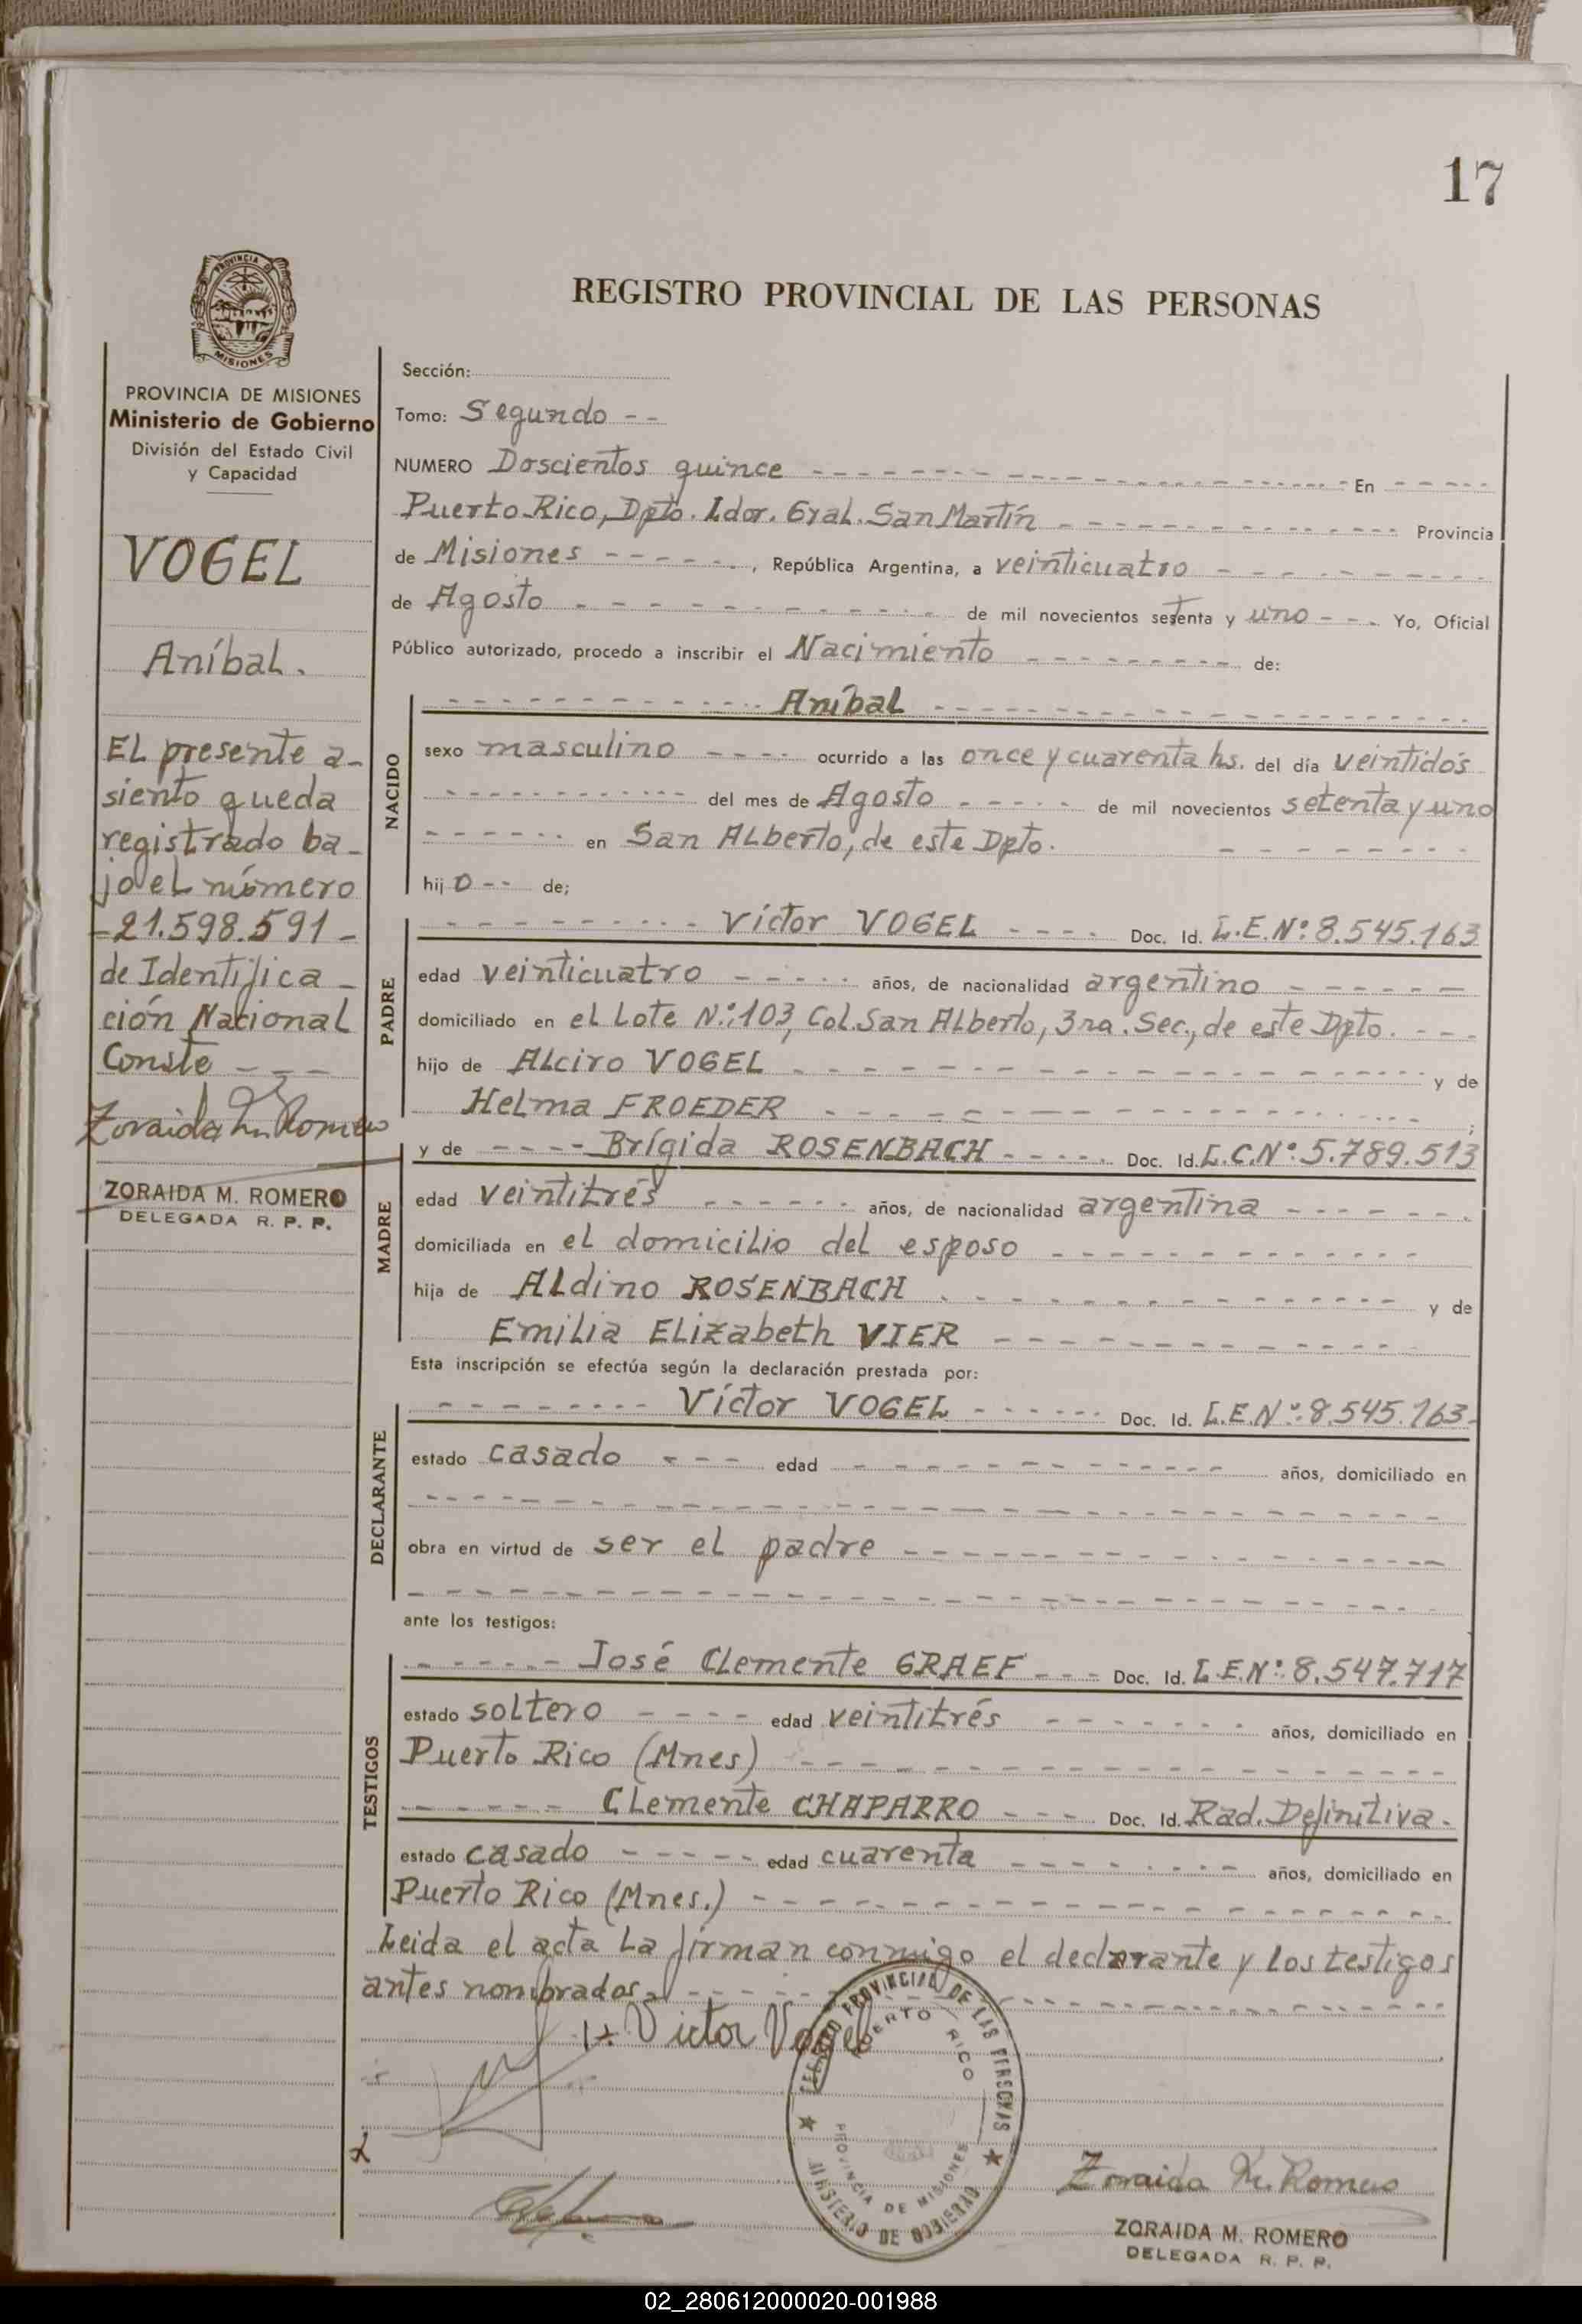 17
REGISTRO PROVINCIAL DE LAS PERSONAS
PROVINCIA DE MISIONES
Ministerio de Gobierno
División del Estado Civil
y Capacidad
VOGEL
Aníbal.
EL presente a-
siento queda
registrado ba-
jo el número
-21.598.591-
de Identifica-
ción Nacional
Conste - - -
Zoraida M. Romero
ZORAIDA M. ROMERO
DELEGADA R. P. P.
Sección:
Tomo: Segundo - -
NUMERO Doscientos quince - - - En - - -
Puerto Rico, Dpto. Ldor. Gral. San Martín - - - Provincia
de Misiones - - -, República Argentina, a veinticuatro - - -
de Agosto - - - de mil novecientos setenta y uno - - - Yo, Oficial
Público autorizado, procedo a inscribir el Nacimiento - - - de:
NACIDO
- - - Aníbal - - -
sexo masculino - - - ocurrido a las once y cuarenta hs. del día veintidós
- - - del mes de Agosto - - - de mil novecientos setenta y uno
- - - en San ALberto, de este Dpto. - - -
hijo - - de;
PADRE
- - - Víctor VOGEL - - - Doc. Id. L.E.Nº: 8.545.163
edad veinticuatro - - - años, de nacionalidad argentino - - -
domiciliado en el Lote N.º: 103, Col. San ALberto, 3ra. Sec., de este Dpto. - - -
hijo de ALciro VOGEL - - - y de
Helma FROEDER - - - ;
MADRE
y de - - - Brígida ROSENBACH - - - Doc. Id. L.C.Nº: 5.789.513
edad veintitrés - - - años, de nacionalidad argentina - - -
domiciliada en el domicilio del esposo - - -
hija de ALdino ROSENBACH - - - y de
Emilia ELizabeth VIER - - -
Esta inscripción se efectúa según la declaración prestada por:
DECLARANTE
- - - Víctor VOGEL - - - Doc. Id. L.E.Nº: 8.545.163-
estado casado - - - edad - - - años, domiciliado en
- - -
obra en virtud de ser el padre - - -
- - -
ante los testigos:
TESTIGOS
- - - José CLemente GRAEF - - - Doc. Id. L.E.Nº: 8.547.717
estado soltero - - - edad veintitrés - - - años, domiciliado en
Puerto Rico (Mnes) - - -
- - - CLemente CHAPARRO - - - Doc. Id. Rad. Definitiva.
estado casado - - - edad cuarenta - - - años, domiciliado en
Puerto Rico (Mnes.) - - -
Leida el acta La firman conmigo el declarante y los testigos
antes nombrados.- - - -
Victor Vogel
REGISTRO PROVINCIAL DE LAS PERSONAS
PUERTO RICO
PROVINCIA DE MISIONES
MINISTERIO DE GOBIERNO
Zoraida M. Romero
ZORAIDA M. ROMERO
DELEGADA R. P. P.
02_280612000020-001988